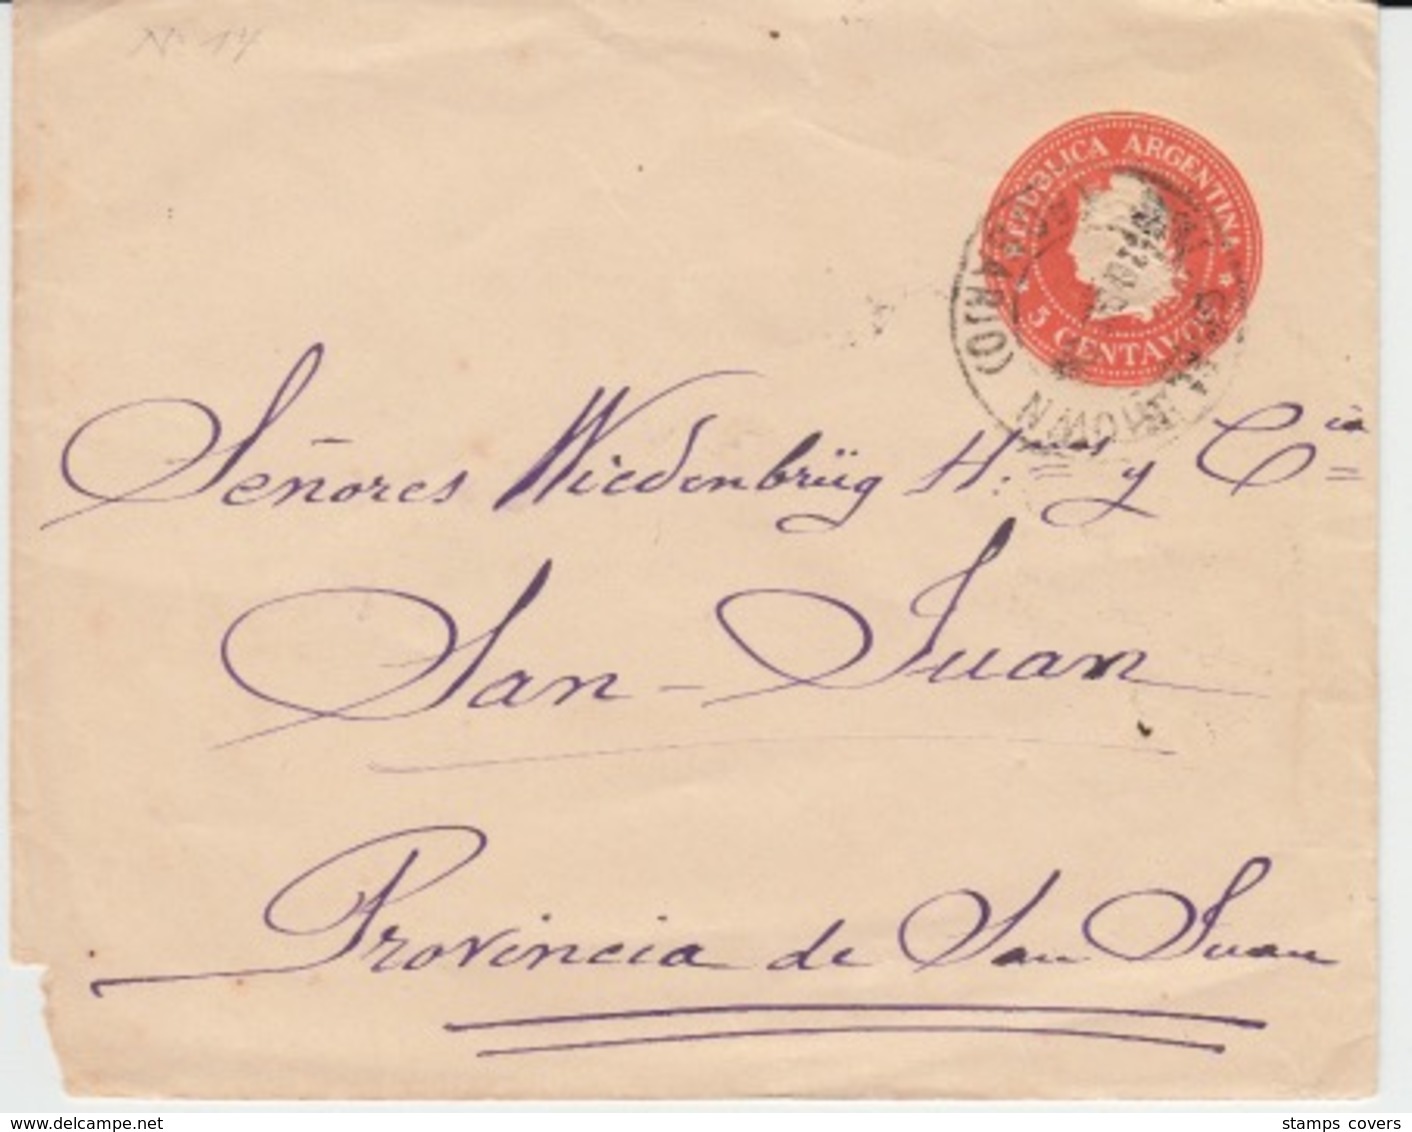 Nº 17
REPUBLICA ARGENTINA
5 CENTAVOS
Señores Wiedenbrüg H.nos y Cia
San-Juan
Provincia de San Juan
www.delcampe.net
stamps covers